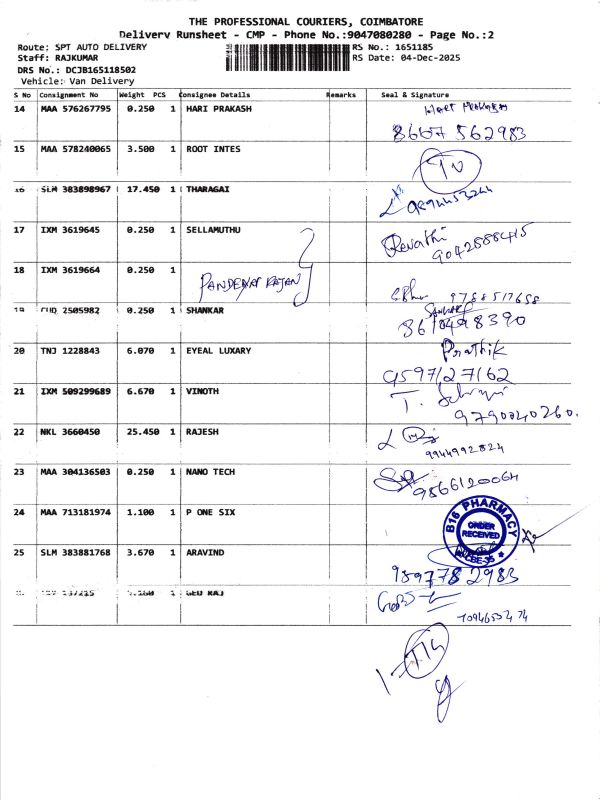 THE PROFESSIONAL COURIERS, COIMBATORE
Delivery Runsheet - CMP - Phone No.:9047080280 - Page No.:2
Route: SPT AUTO DELIVERY RS No.: 1651185
Staff: RAJKUMAR RS Date: 04-Dec-2025
DRS No.: DCJB165118502
Vehicle: Van Delivery
S No Consignment No Weight PCS Consignee Details Remarks Seal & Signature
14 MAA 576267795 0.250 1 HARI PRAKASH
8667 562983
15 MAA 578240065 3.500 1 ROOT INTES
16 SLM 383898967 17.450 1 THARAGAI
17 IXM 3619645 0.250 1 SELLAMUTHU Revathi
9042888415
18 IXM 3619664 0.250 1
9788517658
19 2505982 0.250 1 SHANKAR SANKAR
8610498390
20 TNJ 1228843 6.070 1 EYEAL LUXARY Prathik
9597127162
21 IXM 509299689 6.670 1 VINOTH
9790040260.
22 NKL 3660450 25.450 1 RAJESH
9944992824
23 MAA 304136503 0.250 1 NANO TECH
9566120064
24 MAA 713181974 1.100 1 P ONE SIX B16 PHARMACY
ORDER
RECEIVED
CBE-35
25 SLM 383881768 3.670 1 ARAVIND
9597782983
1 GEO RAJ